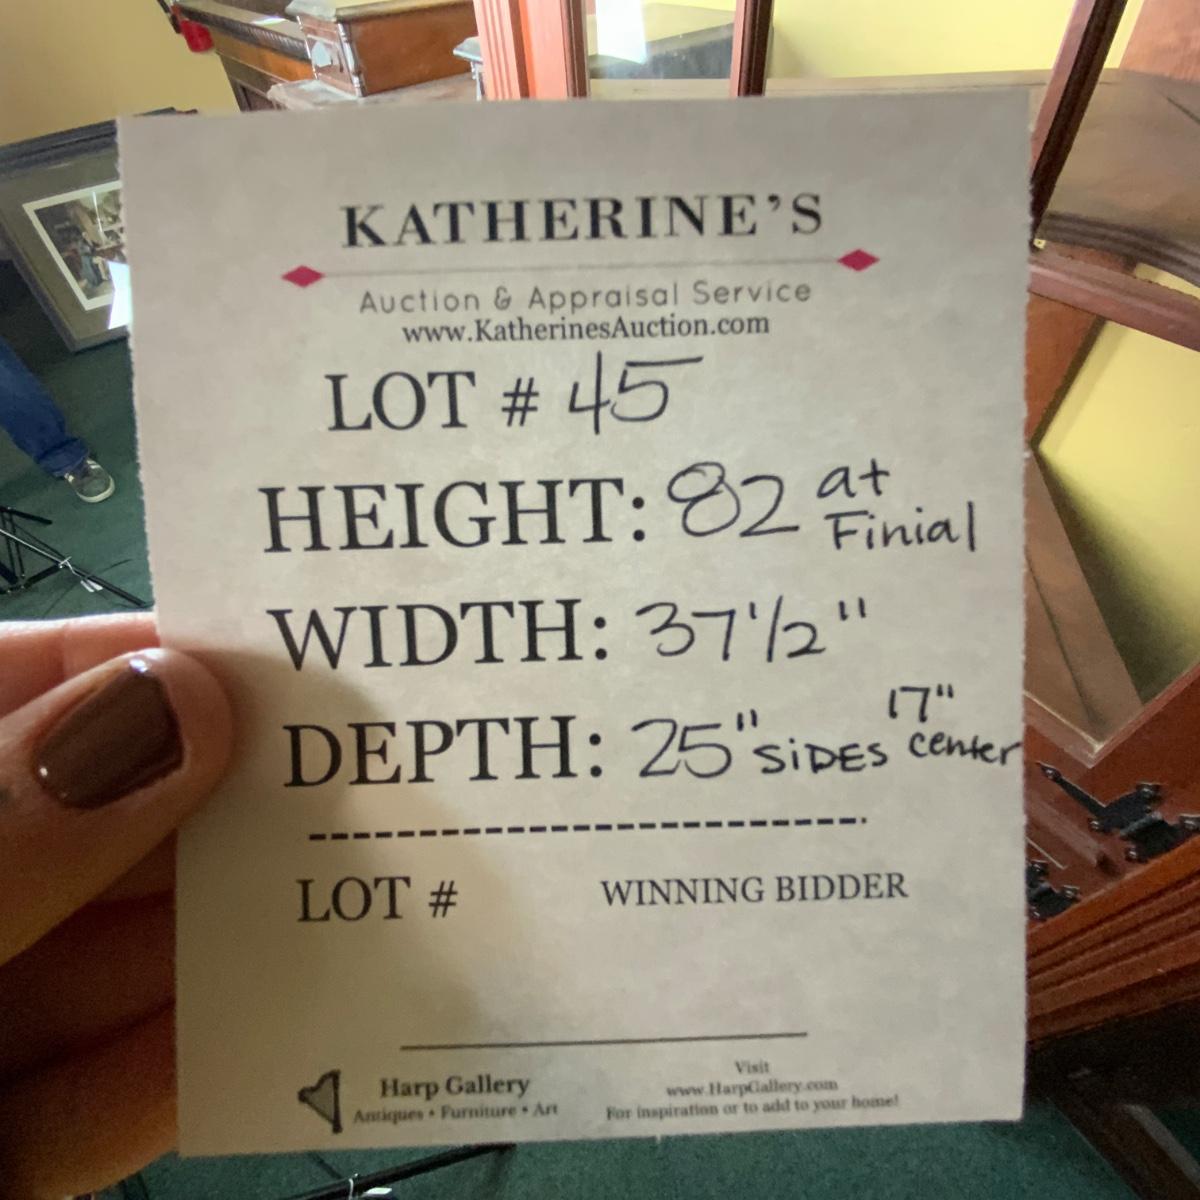 KATHERINE'S
Auction & Appraisal Service
www.KatherinesAuction.com
LOT # 45
HEIGHT: 82 at Finial
WIDTH: 37 1/2"
DEPTH: 25" SiDES 17" center
LOT # WINNING BIDDER
Harp Gallery
Antiques • Furniture • Art
Visit
www.HarpGallery.com
For inspiration or to add to your home!